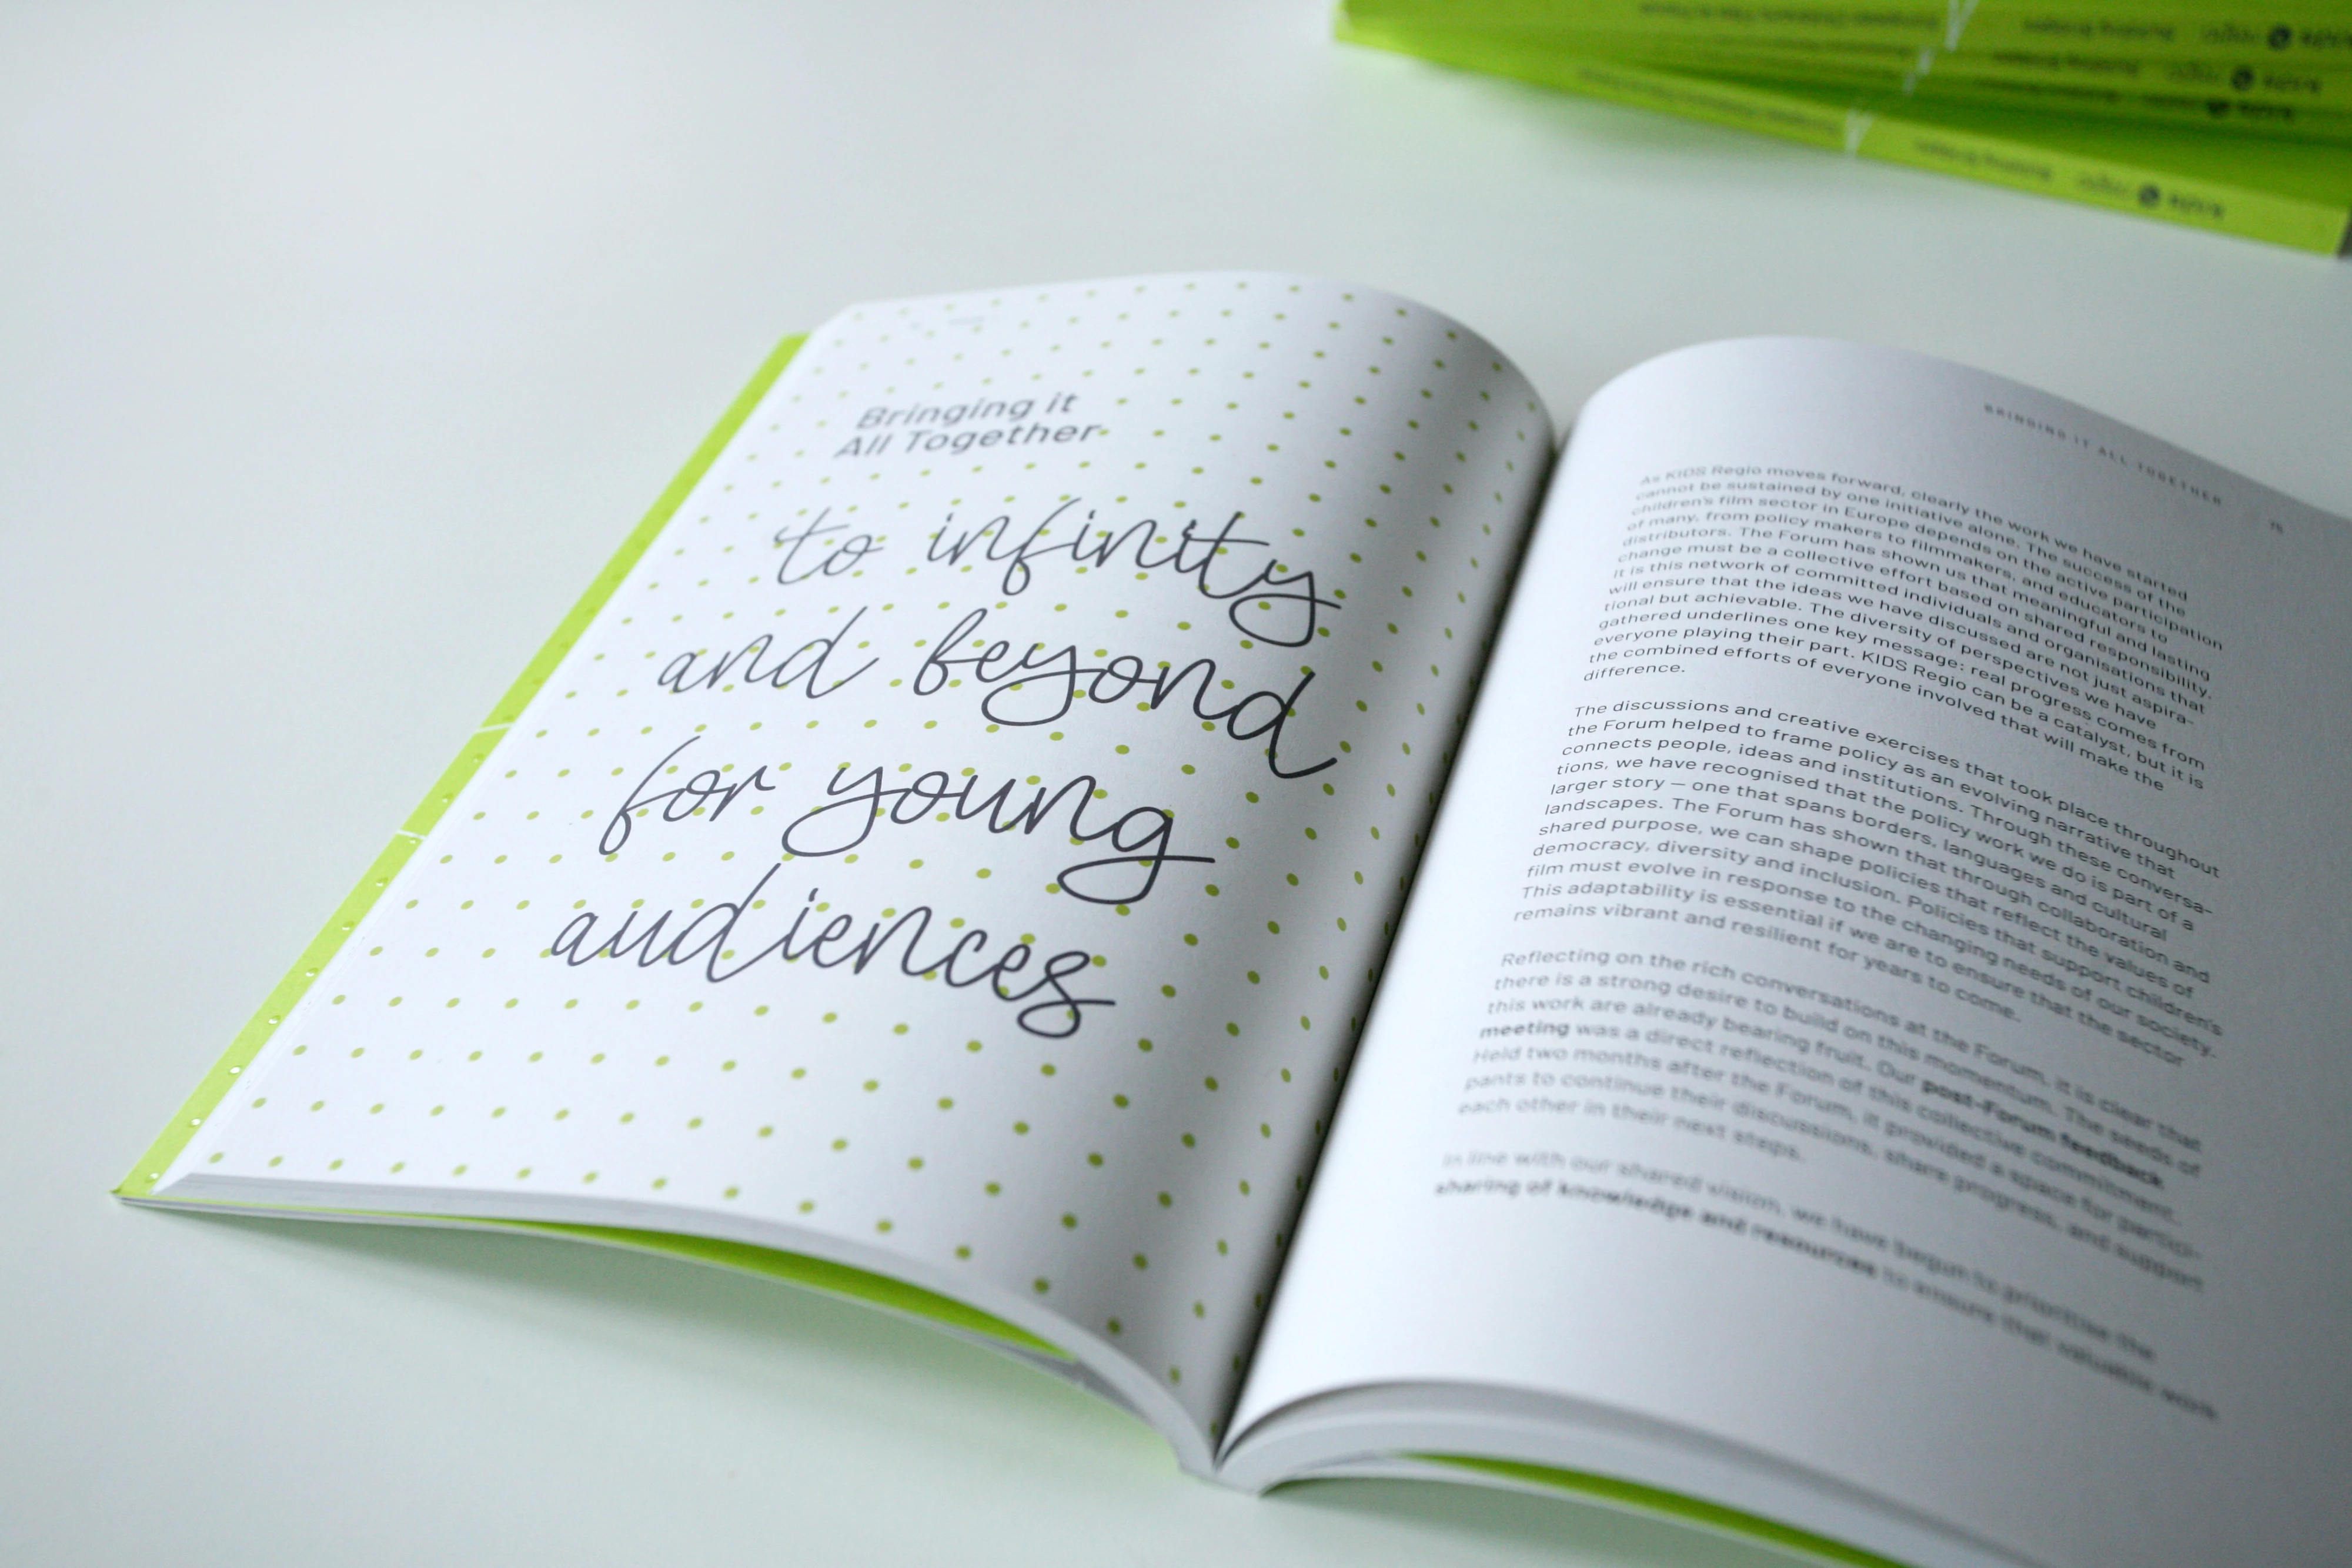 Bringing it
All Together
to infinity
and beyond
for young
audiences
BRINGING IT ALL TOGETHER
As KIDS Regio moves forward, clearly the work we have started
cannot be sustained by one initiative alone. The success of the
children's film sector in Europe depends on the active participation
of many, from policy makers to filmmakers, and educators to
distributors. The Forum has shown us that meaningful and lasting
change must be a collective effort based on shared responsibility.
It is this network of committed individuals and organisations that
will ensure that the ideas we have discussed are not just aspira-
tional but achievable. The diversity of perspectives we have
gathered underlines one key message: real progress comes from
everyone playing their part. KIDS Regio can be a catalyst, but it is
the combined efforts of everyone involved that will make the
difference.
The discussions and creative exercises that took place throughout
the Forum helped to frame policy as an evolving narrative that
connects people, ideas and institutions. Through these conversa-
tions, we have recognised that the policy work we do is part of a
larger story — one that spans borders, languages and cultural
landscapes. The Forum has shown that through collaboration and
shared purpose, we can shape policies that reflect the values of
democracy, diversity and inclusion. Policies that support children's
film must evolve in response to the changing needs of our society.
This adaptability is essential if we are to ensure that the sector
remains vibrant and resilient for years to come.
Reflecting on the rich conversations at the Forum, it is clear that
there is a strong desire to build on this momentum. The seeds of
this work are already bearing fruit. Our post-Forum feedback
meeting was a direct reflection of this collective commitment.
Held two months after the Forum, it provided a space for partici-
pants to continue their discussions, share progress, and support
each other in their next steps.
In line with our shared vision, we have begun to prioritise the
sharing of knowledge and resources to ensure that valuable work